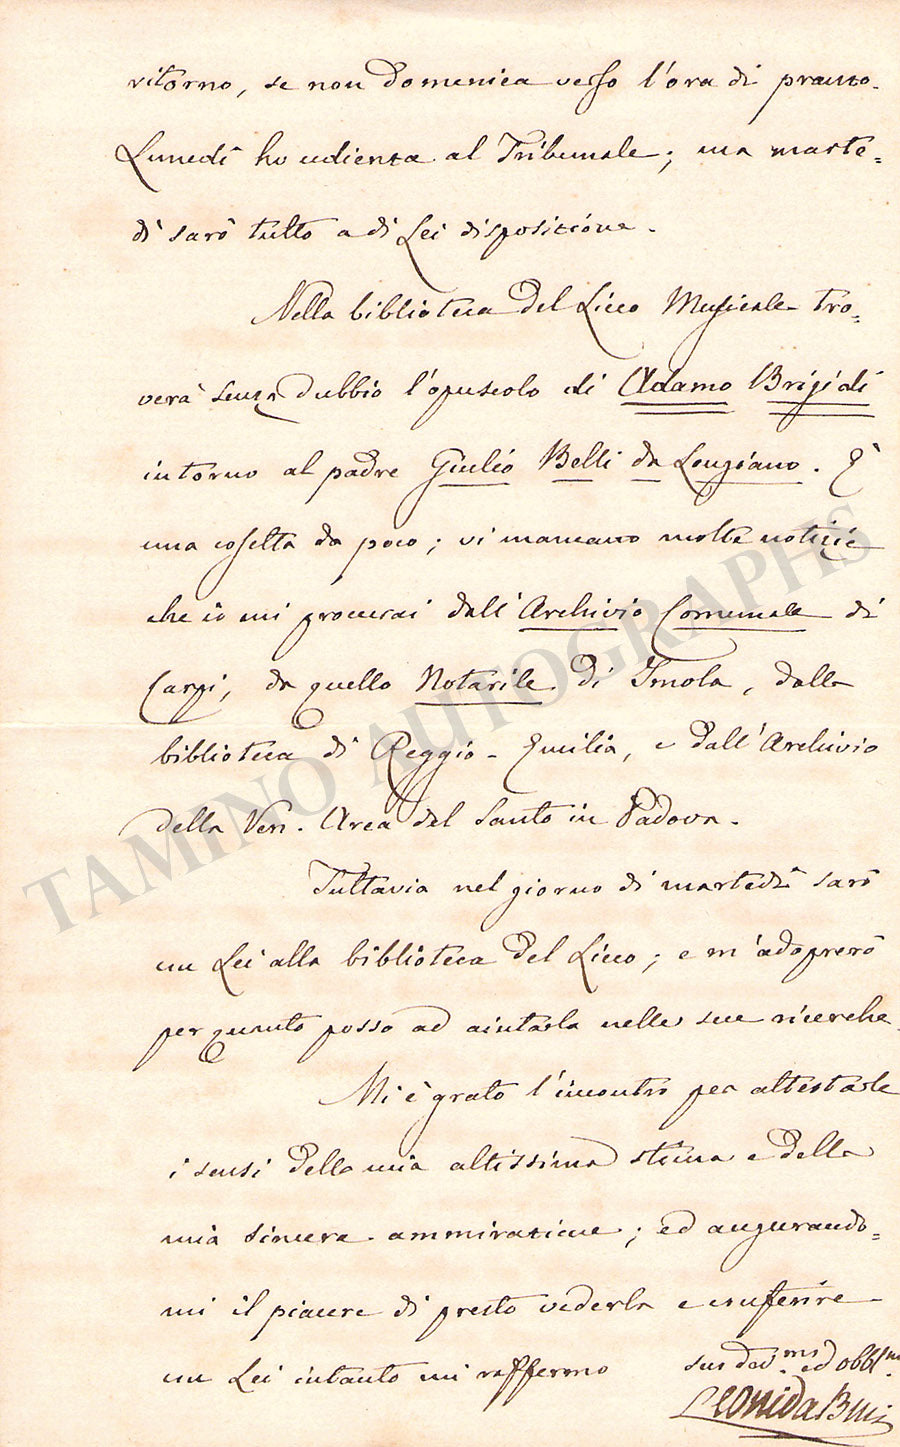 ritorno, se non Domenica verso l'ora di pranzo.
Lunedì ho udienza al Tribunale; ma marte=
dì sarò tutto a di Lei disposizione.
Nella biblioteca del Liceo Musicale tro=
verà senza dubbio l'opuscolo di Adamo Brigidi
intorno al padre Giulio Belli da Longiano. È
una cosetta da poco; vi mancano molte notizie
che io mi procurai dall'Archivio Comunale di
Carpi, da quello Notarile di Imola, dalla
biblioteca di Reggio-Emilia, e dall'Archivio
della Ven. Arca del Santo in Padova.
Tuttavia nel giorno di martedì sarò
con Lei alla biblioteca del Liceo; e m'adoprerò
per quanto posso ad aiutarla nelle sue ricerche.
Mi è grato l'incontro per attestarle
i sensi della mia altissima stima e della
mia sincera ammirazione; ed augurando=
mi il piacere di presto vederla e conferire
con Lei intanto mi raffermo
suo dev.mo ed obbl.mo
Leonida Busi
TAMINO AUTOGRAPHS